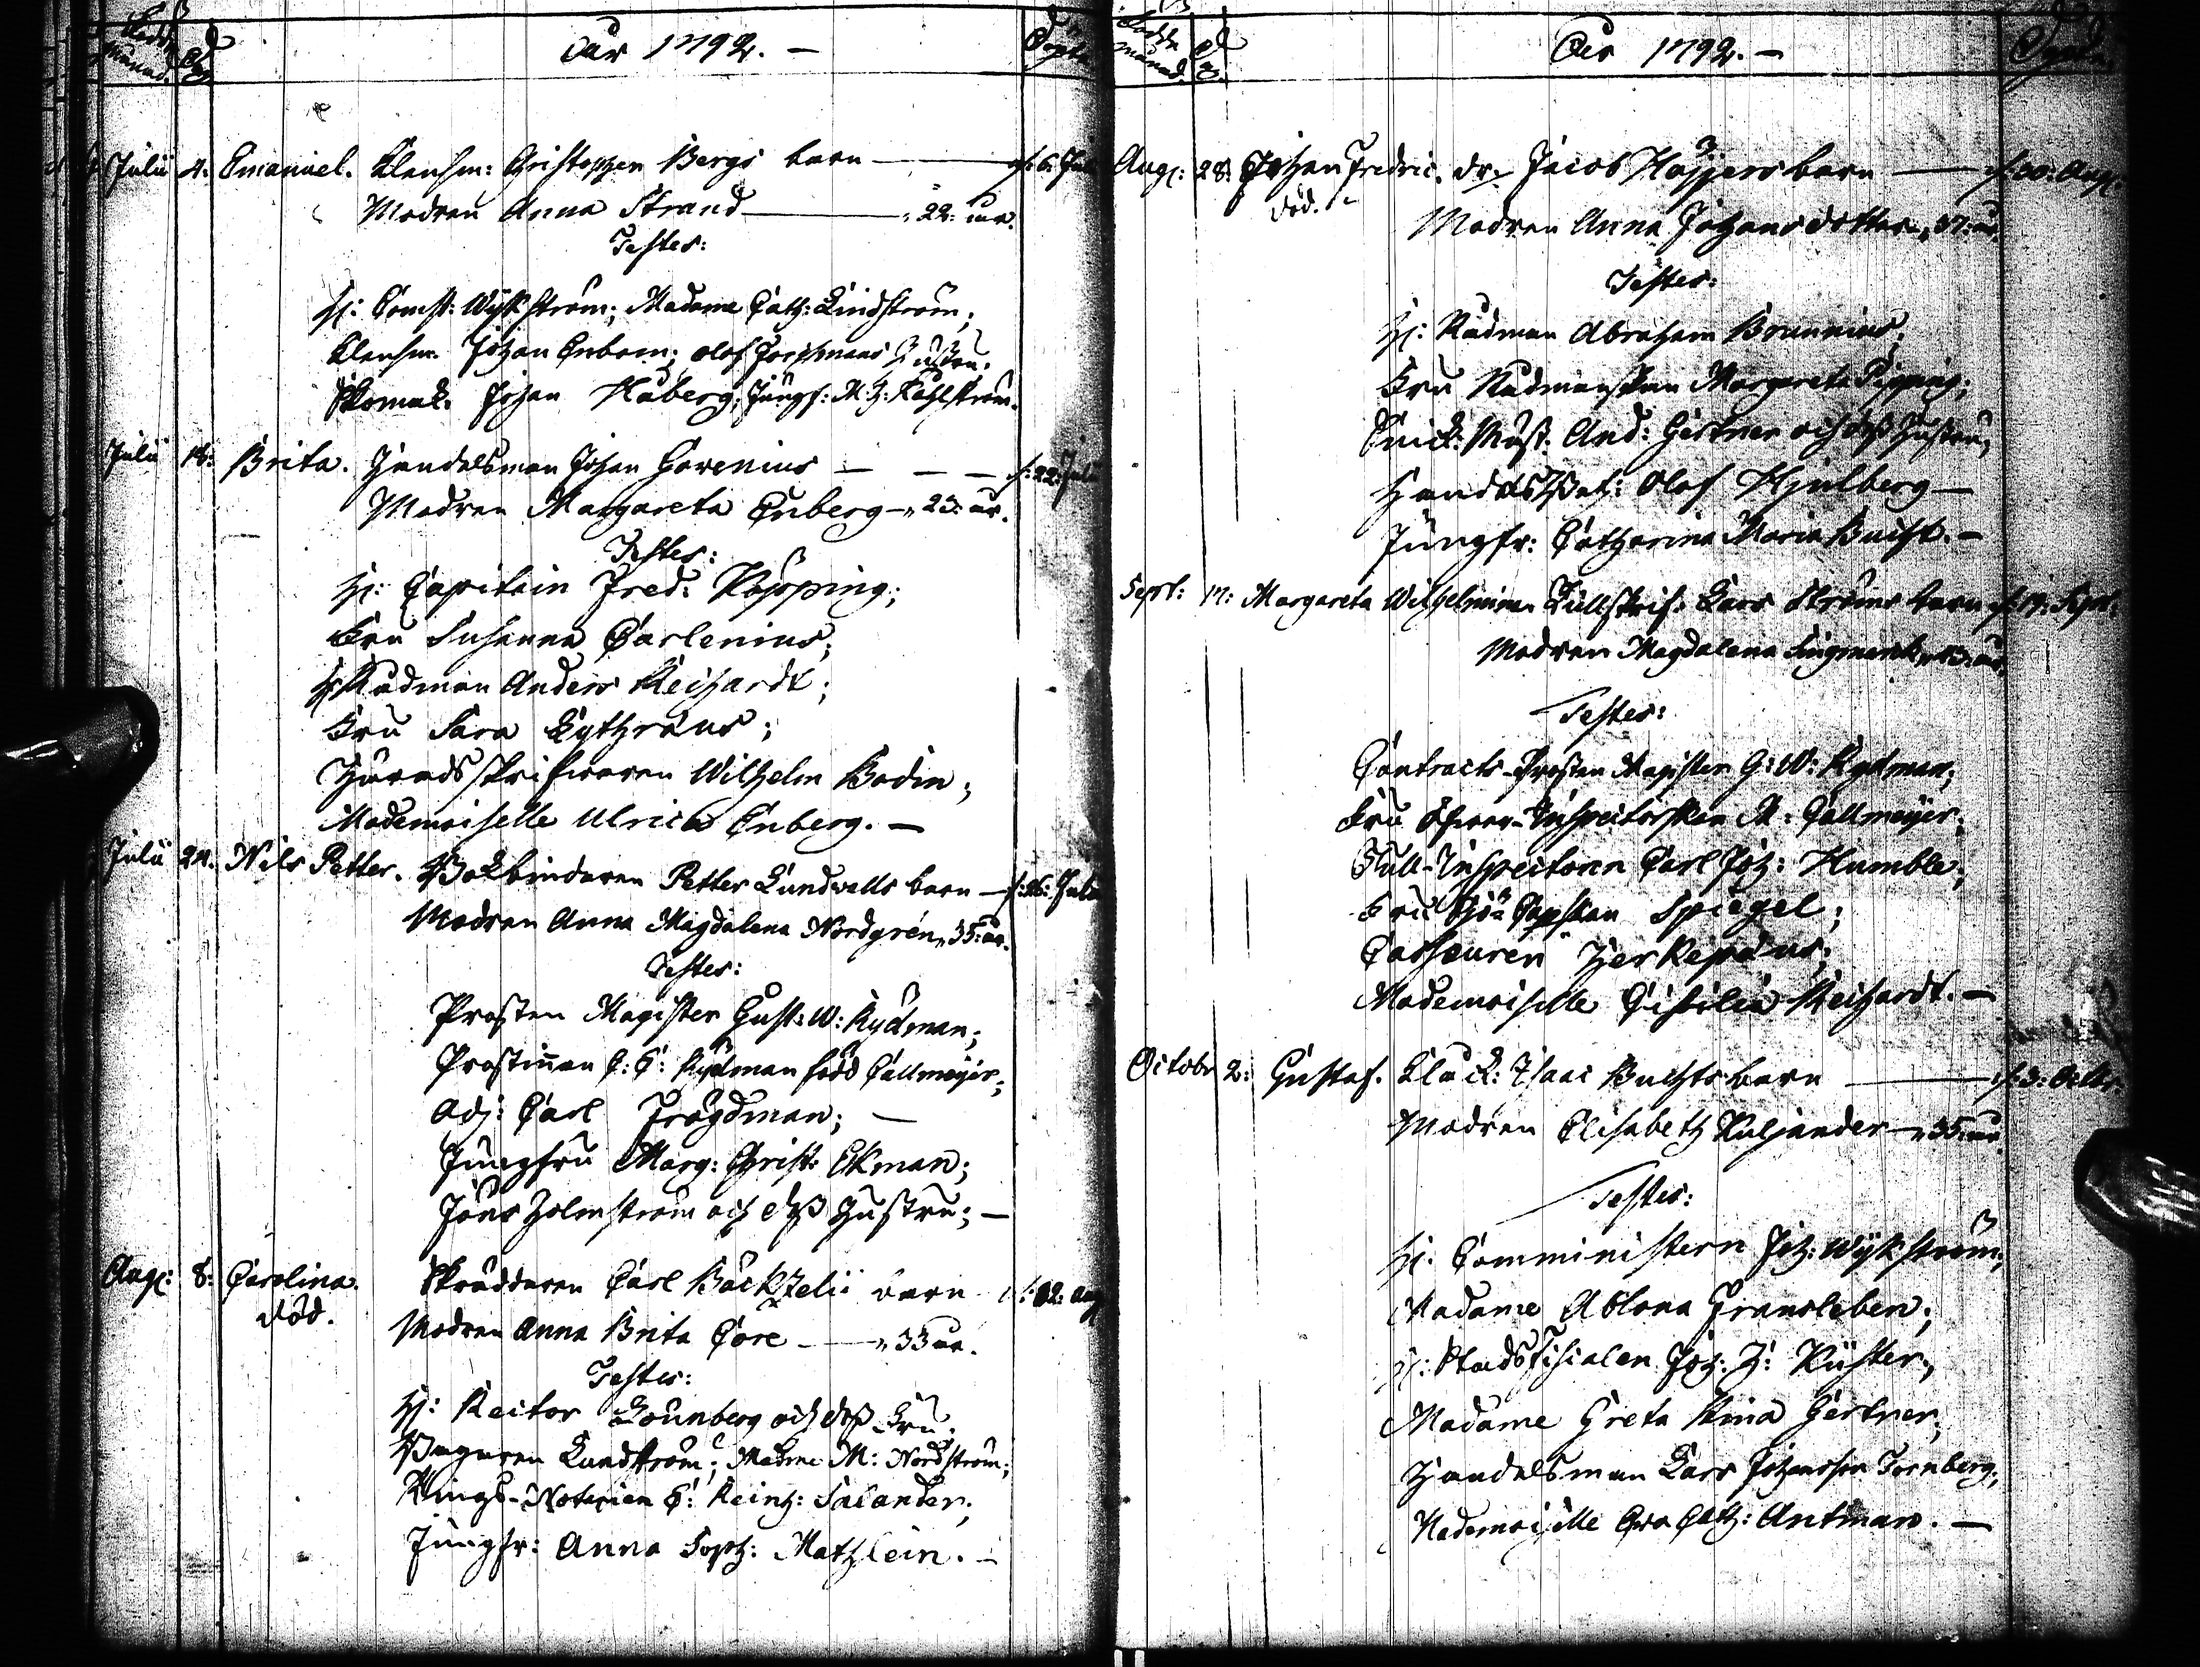 Födde Månad. Dag
Åår 1792. —
Döpte
Julii 4. Emanuel. Klensm: Christopher Bergs barn — d. 6. Juli
Modren Anna Strand — 22: år.
Testes:
H: Comst: Wykström; Madame Cath: Lindström;
Klensm. Johan Enbom; Olof hustru.
Skomak. Johan Håberg; Jungf: M: H: Kahlström.
Julii 18: Brita. Handelsman Johan Govenius — — — d: 22: Julii
Modren Margareta Enberg — 23: år.
Testes:
H: Capitain Fred: Köpping;
Fru Susanna Carlenius;
H: Rådman Anders Reichardt;
Fru Sara Lythræus;
Häradsskrifwaren Wilhelm Bodin;
Mademoiselle Ulrica Enberg. —
Julii 24. Nils Petter. Bokbindaren Petter Lundwalls barn — d: 26: Julii
Modren Anna Magdalena Nordgrén, 35: år.
Testes:
Prosten Magister Gust: W: Rydman;
Prostinnan C: C: Rydman född Callmeyer;
Adj: Carl Frögdman; —
Jungfru Marg: Christ: Ekman;
Jöns Holmström och dess Hustru; —
Aug: 8: Carolina. Skräddaren Carl Bäckzelii barn d: 12: Aug
död.
Modren Anna Brita Core — 33 år.
Testes:
H: Rector Lounberg och dess Fru;
Bagaren Lundström; Madme M: Nordström;
Rings-Notarien C: Reinh: Salander;
Jungfr: Anna Soph: Mathlein. —
Födde Månad. Dag
Åår 1792. —
Döpte
Aug: 28: Johan Fredric. dr. Jacob Höijers barn — d: 30: Aug.
död.
Modren Anna Johansdotter, 37: år.
Testes:
H: Rådman Abraham Brunnius;
Fru Rådmanskan Margareta Pipping;
Snick: Mäst: And: Gertner och dess Hustru;
Handels Olof Hjulberg —
Jungfr: Catharina Maria Bucht. —
Sept: 17: Margareta Wilhelmina. Tullskrif. Lars Ströms barn d: 19: Sept.
Modren Magdalena Lingment år.
Testes:
Contracts-Prosten Magister G: W: Rydman;
Fru Inspectorskan M: Callmeyer;
Tull-Inspectoren Carl Joh: Humble;
Fru Sjö-Capskan Spiegel;
Casseuren Herkepæus;
Mademoiselle Cicilia Reichardt. —
Octobr 2: Gustaf. Klock: Isaac Buchts barn — d: 3: Octbr.
Modren Elisabeth Kuljander — 35: år
Testes:
H: Comministern Joh: Wykström;
Madame Ablona Gransleben;
H: Stadsfiscalen Joh: H: Küster;
Madame Greta Stina Gertner;
Handelsman Lars Johansson Tornberg;
Mademoiselle Eva Cath: Antman. —